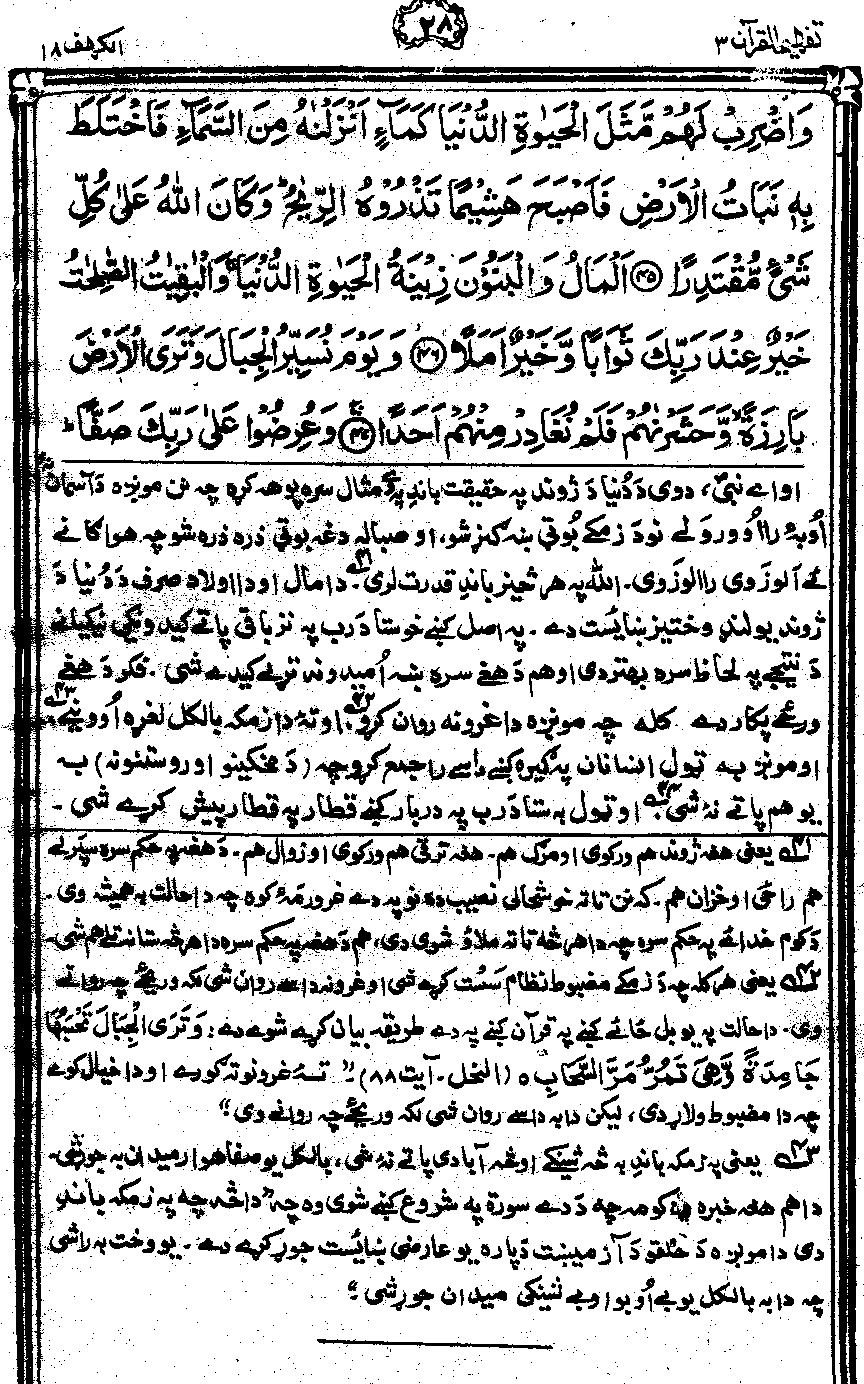 تفهيم القرآن ۳
۲۸
الكهف ۱۸
وَاضْرِبْ لَهُمْ مَّثَلَ الْحَيٰوةِ الدُّنْيَا كَمَآءٍ اَنْزَلْنٰهُ مِنَ السَّمَآءِ فَاخْتَلَطَ
بِهٖ نَبَاتُ الْاَرْضِ فَاَصْبَحَ هَشِيْمًا تَذْرُوْهُ الرِّيٰحُ ؕ وَكَانَ اللّٰهُ عَلٰى كُلِّ
شَىْءٍ مُّقْتَدِرًا ۝۴۵ اَلْمَالُ وَالْبَنُوْنَ زِيْنَةُ الْحَيٰوةِ الدُّنْيَا ۚ وَالْبٰقِيٰتُ الصّٰلِحٰتُ
خَيْرٌ عِنْدَ رَبِّكَ ثَوَابًا وَّخَيْرٌ اَمَلًا ۝۴۶ وَيَوْمَ نُسَيِّرُ الْجِبَالَ وَتَرَى الْاَرْضَ
بَارِزَةً ۙ وَّحَشَرْنٰهُمْ فَلَمْ نُغَادِرْ مِنْهُمْ اَحَدًا ۝۴۷ وَعُرِضُوْا عَلٰى رَبِّكَ صَفًّا ؕ
او اے نبیؐ، دوی ته د دُنیا د ژوند په حقیقت باندِ په دې مثال سره پوهه کړه چه نن مونږه د آسمان نه
اُوبهٔ را اُوورولے نو د زمکے بُوټی ښه ګنړ شو، او صبا له دغه بوټی ذره ذره شو چه هوا ګانے
ئے آلوزوی راالوزوی. الله په هر څیز باندِ قدرت لری. دا مال او دا اولاد صرف د دُنیا د
ژوند یو لنډ وختیز ښایست دے. په اصل کښے خو ستا د رب په نز باقی پاتے کیدونکی نیکیانے
د نتیجے په لحاظ سره بهتر دی او هم د هغے سره ښه اُمیدونه تړلے کیدے شی. فکر د هغے
ورځے پکار دے کله چه مونږه دا غرونه روان کړو. او تهٔ دا زمکه بالکل لغړه اُووینے.
او مونږ به ټول انسانان په ګیره کښے داسے راجمع کړو چه (د مخکینو او روستنو نه) به
یو هم پاتے نهٔ شی. او ټول به ستا د رب په دربار کښے قطار په قطار پیش کړے شی.
۴۱ یعنی هغه ژوند هم ورکوی او مرګ هم. هغه ترقی هم ورکوی او زوال هم. د هغه په حکم سره سپرلے
هم راځی او خزان هم. که نن تا ته خوشحالی نصیب ده نو په دے غرور مهٔ کوه چه دا حالت به همیشه وی.
د کوم خدائے په حکم سره چه دا هر څه تا ته ملاؤ شوی دی، هم د هغه په حکم سره دا هر څه ستا نه تلے هم شی.
۴۲ یعنی هر کله چه د زمکے مضبوط نظام سُست کړے شی او غرونه داسے روان شی لکه وریځے چه روانے
وی. دا حالت په یو بل ځائے کښے په قرآن کښے په دے طریقه بیان کړے شوے دے: وَتَرَى الْجِبَالَ تَحْسَبُهَا
جَامِدَةً وَّهِىَ تَمُرُّ مَرَّ السَّحَابِ ۝ (النحل. آیت ۸۸)." تهٔ غرونو ته ګورے او دا خیال کوے
چه دا مضبوط ولاړ دی، لیکن دا به داسے روان شی لکه وریځے چه روانے وی."
۴۳ یعنی په زمکه باندِ به څه ثینګے او څه آبادی پاتے نهٔ شی، بالکل یو صفا هوار میدان به جوړ شی.
دا هم هغه خبره ده کومه چه د دے سورة په شروع کښے شوی وه چه "دا څه چه په زمکه باندِ
دی دا مونږه د خلقو د آزمیښت دپاره یو عارضی ښایست جوړ کړے دے. یو وخت به راشی
چه دا به بالکل یو بے اُوبو او بے ثینګی میدان جوړ شی."